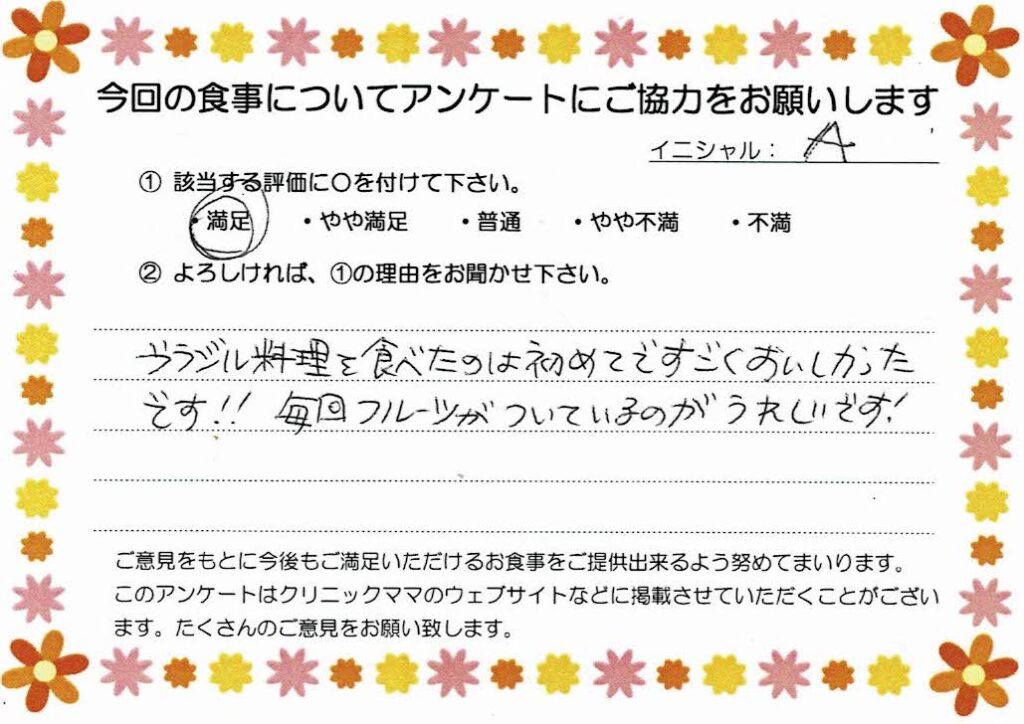 今回の食事についてアンケートにご協力をお願いします
イニシャル： A
① 該当する評価に〇を付けて下さい。
・満足 ・やや満足 ・普通 ・やや不満 ・不満
② よろしければ、①の理由をお聞かせ下さい。
ブラジル料理を食べたのは初めてですごくおいしかった
です!! 毎回フルーツがついているのがうれしいです!
ご意見をもとに今後もご満足いただけるお食事をご提供出来るよう努めてまいります。
このアンケートはクリニックママのウェブサイトなどに掲載させていただくことがござい
ます。たくさんのご意見をお願い致します。